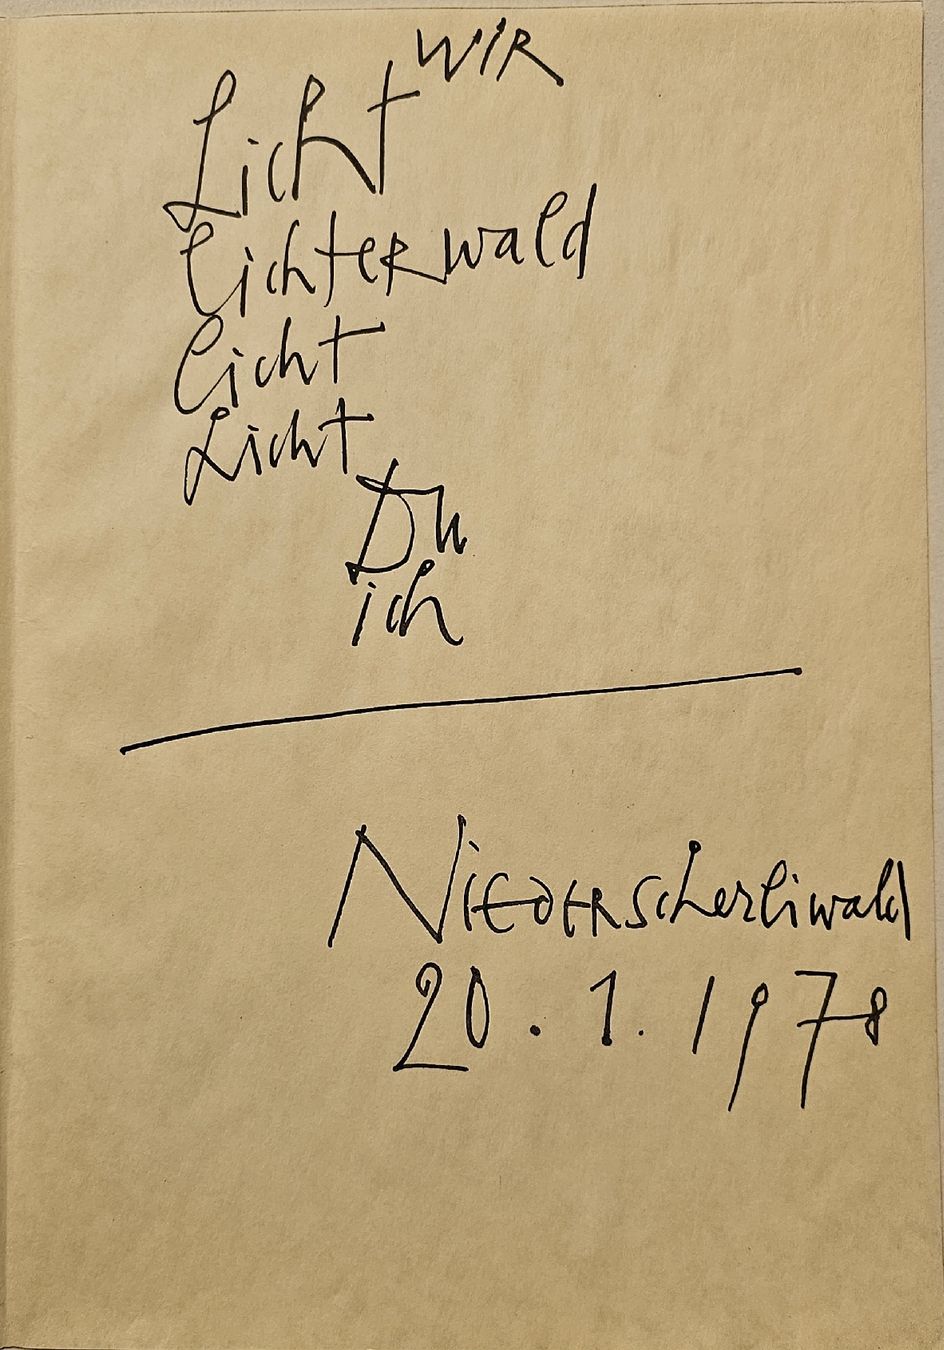 WIR
Licht
lichterwald
licht
Licht
Du
ich
Niederscherliwald
20.1.1978